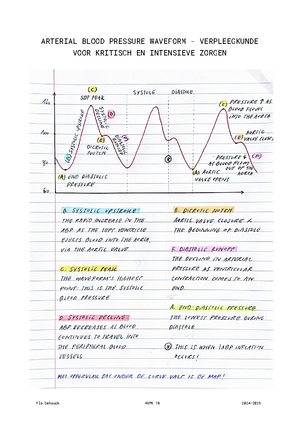 ARTERIAL BLOOD PRESSURE WAVEFORM - VERPLEEGKUNDE
VOOR KRITISCH EN INTENSIEVE ZORGEN
(C)
SBP PEAK
SYSTOLE
DIASTOLE
120
100
80
60
SYSTOLIC UPSTROKE
(D)
(E)
DICROTIC
NOTCH
(F)
(A) END DIASTOLIC
PRESSURE
(A) AORTIC
VALVE OPENS
(C) PRESSURE ↑ AS
BLOOD FLOWS
INTO THE AORTA
(E) AORTIC
VALVE CLOSES
PRESSURE ↓
AS BLOOD FLOWS
OUT OF THE
AORTA
(F)
B. SYSTOLIC UPSTROKE
THE RAPID INCREASE IN THE
ABP AS THE LEFT VENTRICLE
EJECTS BLOOD INTO THE AORTA,
VIA THE AORTIC VALVE
C. SYSTOLIC PEAK
THE WAVEFORM'S HIGHEST
POINT. THIS IS THE SYSTOLIC
BLOOD PRESSURE
D. SYSTOLIC DECLINE
ABP DECREASES AS BLOOD
CONTINUES TO TRAVEL INTO
THE PERIPHERAL BLOOD
VESSELS
E. DICROTIC NOTCH
AORTIC VALVE CLOSURE &
THE BEGINNING OF DIASTOLE
F. DIASTOLIC RUNOFF
THE DECLINE IN ARTERIAL
PRESSURE AS VENTRICULAR
CONTRACTION COMES TO AN
END.
A. END DIASTOLIC PRESSURE
THE LOWEST PRESSURE DURING
DIASTOLE
THIS IS WHEN IABP INFLATION
OCCURS!
HET OPPERVLAK DAT ONDER DE CURVE VALT IS DE MAP!
2024-2025